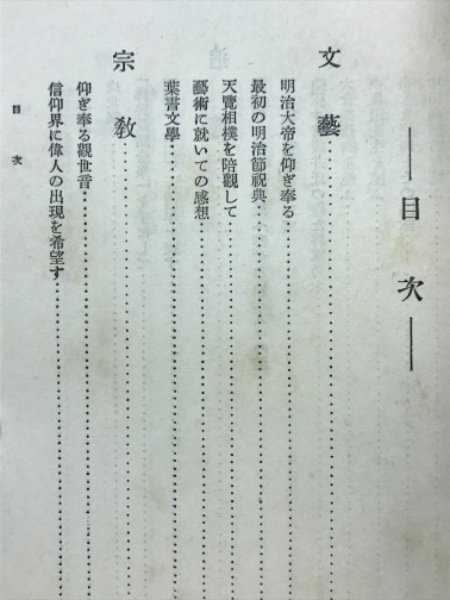 ―目次―
文藝
明治大帝を仰ぎ奉る
最初の明治節祝典
天覽相撲を陪觀して
藝術に就いての感想
葉書文學
宗教
仰ぎ奉る觀世音
信仰界に偉人の出現を希望す
目次